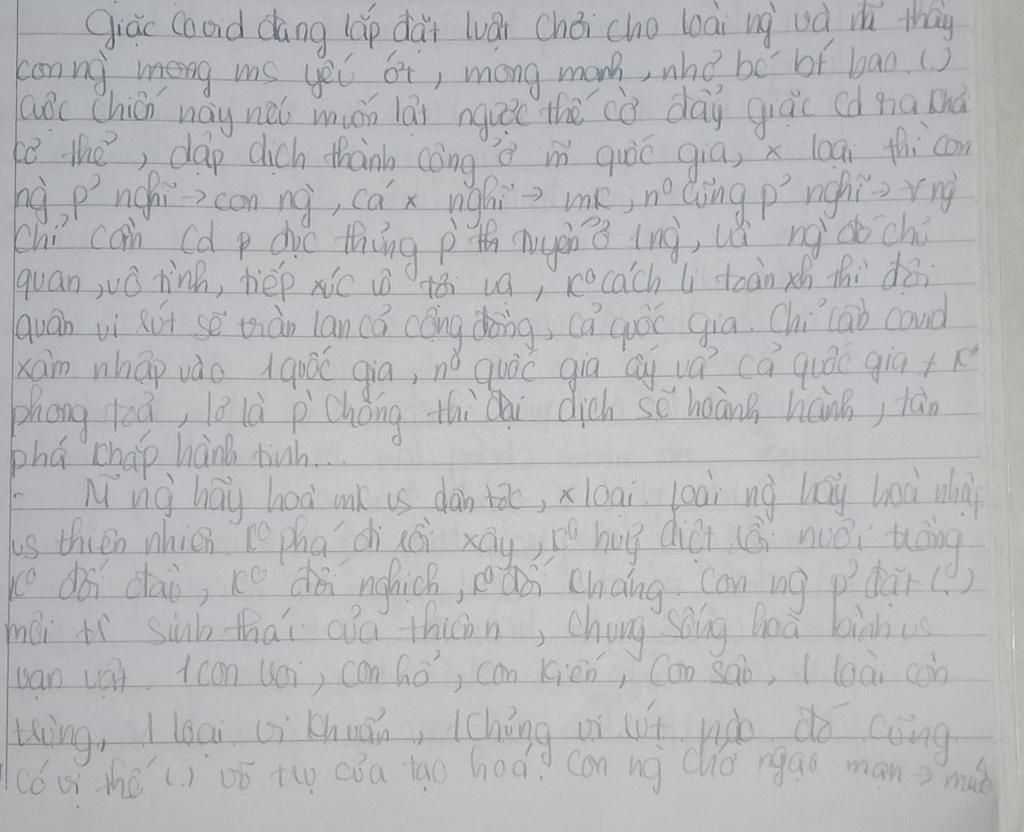 Giặc Covid đang lắp đặt luật chơi cho loài ng và thấy
con ng mong ms yếu ớt, mong manh, nhỏ bé bí bao. (.)
cuộc chiến này nếu muốn lật ngược thế cờ đẩy giặc Cd ra khỏi
cơ thể, dập dịch thành công ở m quốc gia, x loại thì con
ng p² nghĩ → con ng, cá x nghĩ → mk, n⁰ cũng p² nghĩ → ng
Chỉ cần Cd p đục thủng p th tuyến ở 1 ng, và ng đó chủ
quan, vô tình, tiếp xúc vô tội vạ, k⁰ cách li toàn xh thì đội
quân vi rút sẽ tràn lan cả cộng đồng, cả quốc gia. Chỉ cần covid
xâm nhập vào 1 quốc gia, n⁰ quốc gia ấy và cả quốc gia ≠ k⁰
phong toả, lơ là p chống thì đại dịch sẽ hoành hành, tàn
phá khắp hành tinh...
- M ng hãy hoà mk vs dân tộc, x loại loài ng hãy hoà nhập
vs thiên nhiên k⁰ phá đi rồi xây, k⁰ huỷ diệt rồi nuôi trồng
k⁰ đối đầu, k⁰ đối nghịch, k⁰ đối kháng. Con ng p² đặt (.)
môi tr sinh thái của thiên n, chung sống hoà bình vs
vạn vật. 1 con voi, con hổ, con kiến, con sâu, 1 loài côn
trùng, 1 loại vi khuẩn, 1 chủng vi rút nào đó cũng
có vị thế (.) vũ trụ của tạo hoá. Con ng chớ ngạo mạn →